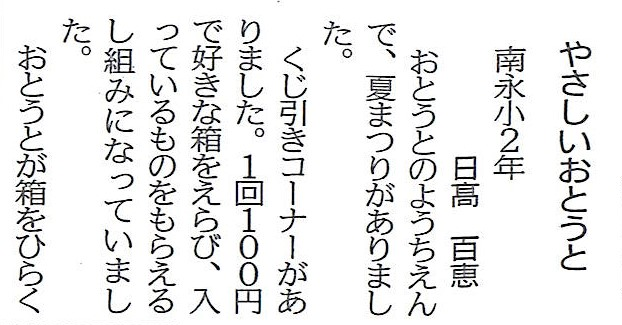 やさしいおとうと
南永小2年
日高 百恵
おとうとのようちえん
で、夏まつりがありまし
た。
くじ引きコーナーがあ
りました。1回100円
で好きな箱をえらび、入
っているものをもらえる
し組みになっていまし
た。
おとうとが箱をひらく